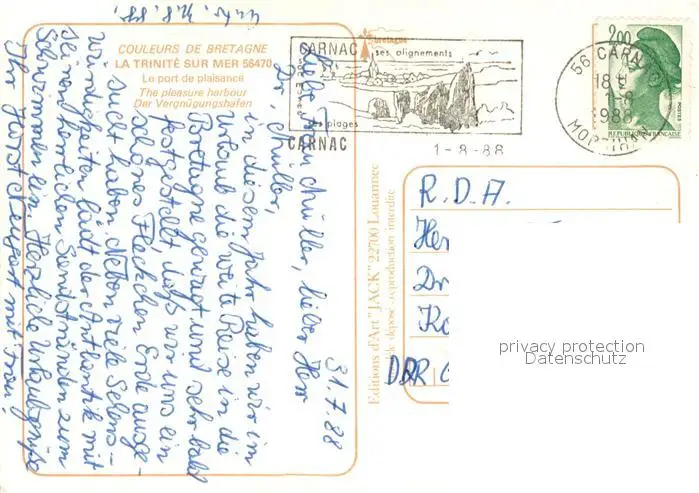 COULEURS DE BRETAGNE
LA TRINITÉ SUR MER 56470
Le port de plaisance
The pleasure harbour
Der Vergnügungshafen
bretagne
CARNAC
ses alignements
ses plages
CARNAC
1-8-88
2,00
56 CARNAC
18 H
1-8
1988
MORBIHAN
REPUBLIQUE FRANCAISE
POSTES
31.7.88
Liebe Frau Müller, lieber Herr
Dr. Müller,
in diesem Jahr haben wir im
Urlaub die weite Reise in die
Bretagne gewagt und sehr bald
festgestellt, daß wir uns ein
schönes Fleckchen Erde ausge-
sucht haben. Neben viele Sehens-
würdigkeiten lädt der Atlantik mit
seinen herrlichen Sandstränden zum
Schwimmen ein. Herzliche Urlaubsgrüße
Ihr Horst mit Frau!
Editions d'Art "JACK" 22700 Louannec
déposé - reproduction interdite
R.D.A.
Her
Dr
Ko
DDR
privacy protection
Datenschutz